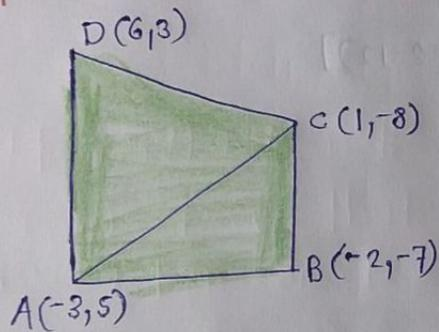 D(6,3)
C(1,-8)
B(-2,-7)
A(-3,5)